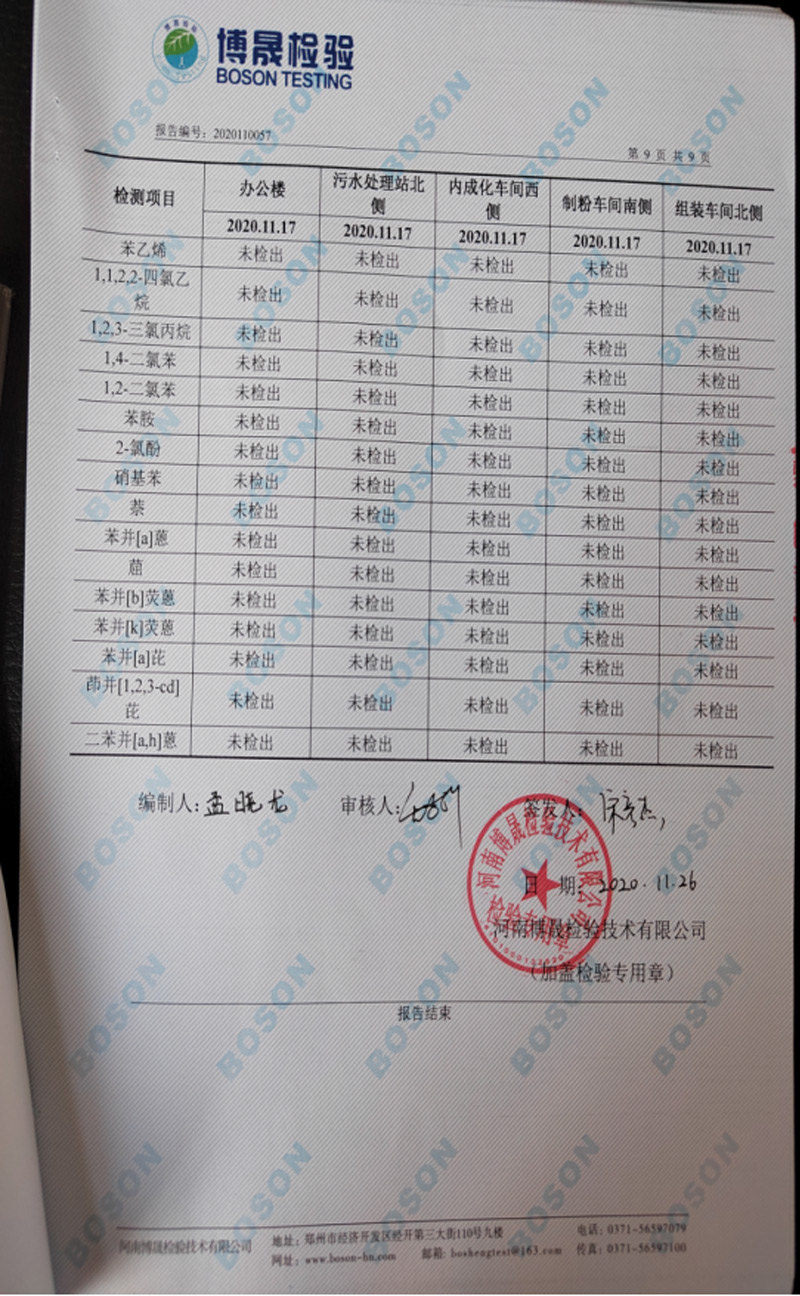 博晟检验
BOSON TESTING
报告编号：2020110057
第 9 页 共 9 页
检测项目 办公楼 污水处理站北侧 内成化车间西侧 制粉车间南侧 组装车间北侧
2020.11.17 2020.11.17 2020.11.17 2020.11.17 2020.11.17
苯乙烯 未检出 未检出 未检出 未检出 未检出
1,1,2,2-四氯乙烷 未检出 未检出 未检出 未检出 未检出
1,2,3-三氯丙烷 未检出 未检出 未检出 未检出 未检出
1,4-二氯苯 未检出 未检出 未检出 未检出 未检出
1,2-二氯苯 未检出 未检出 未检出 未检出 未检出
苯胺 未检出 未检出 未检出 未检出 未检出
2-氯酚 未检出 未检出 未检出 未检出 未检出
硝基苯 未检出 未检出 未检出 未检出 未检出
萘 未检出 未检出 未检出 未检出 未检出
苯并[a]蒽 未检出 未检出 未检出 未检出 未检出
䓛 未检出 未检出 未检出 未检出 未检出
苯并[b]荧蒽 未检出 未检出 未检出 未检出 未检出
苯并[k]荧蒽 未检出 未检出 未检出 未检出 未检出
苯并[a]芘 未检出 未检出 未检出 未检出 未检出
茚并[1,2,3-cd]芘 未检出 未检出 未检出 未检出 未检出
二苯并[a,h]蒽 未检出 未检出 未检出 未检出 未检出
编制人：孟晓龙 审核人： 签发人：
日 期：2020.11.26
河南博晟检验技术有限公司
（加盖检验专用章）
河南博晟检验技术有限公司
检验专用章
报告结束
河南博晟检验技术有限公司 地址：郑州市经济开发区经开第三大街110号九楼 电话：0371-56597079
网址：www.boson-hn.com 邮箱: boshengtest@163.com 传真：0371-56597100